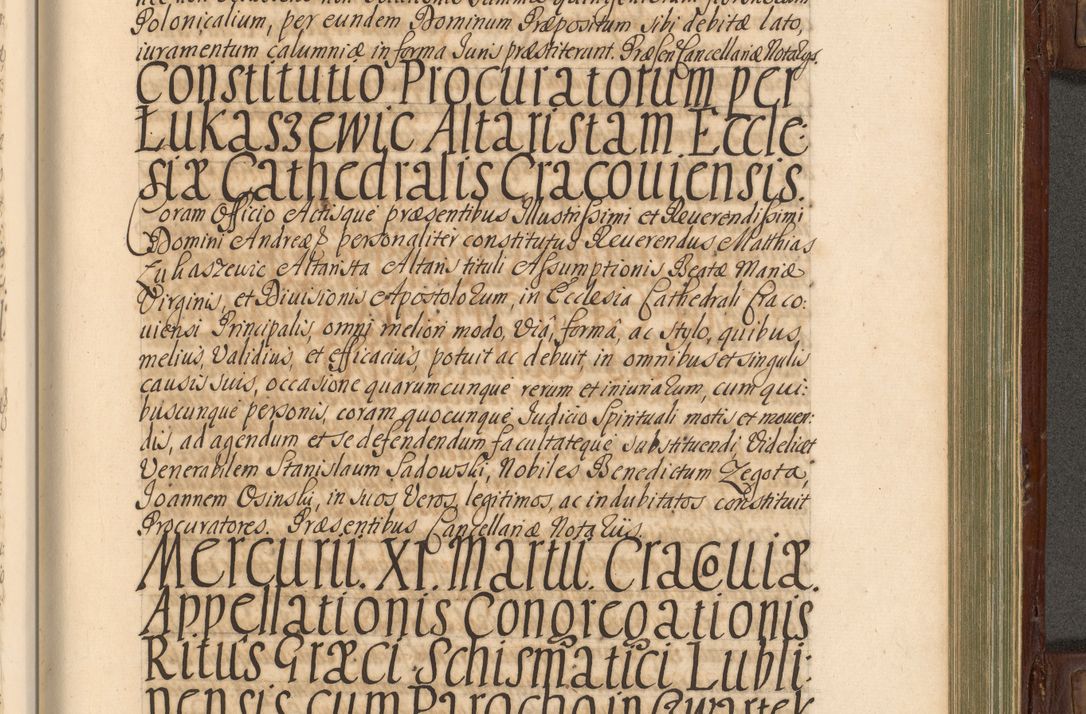 Polonicalium, per eundem Dominum Præpositum sibi debitæ lato,
iuramentum calumniæ in forma Iuris præstiterunt. Præsen Cancellariæ Notarys.
Constitutio Procuratorum per
Łukaszewic Altaristam Eccle:
siæ Cathedralis Cracouiensis.
Coram Officio Actisque præsentibus Illustrissimi et Reuerendissimi
Domini Andreæ personaliter constitutus Reuerendus Matthias
Łukaszewic Altarista Altaris tituli Assumptionis Beatæ Mariæ
Virginis, et Diuisionis Apostolorum, in Ecclesia Cathedrali Craco:
uiensi Principalis, omni meliori modo, Viâ, formâ, ac stylo, quibus,
melius, Validius, et efficacius, potuit ac debuit, in omnibus et singulis
causis suis, occasione quarumcunque rerum et iniuriarum, cum qui:
buscunque personis, coram quocunque Iudicio Spirituali motis et mouen:
dis, ad agendum et se defendendum, facultateque substituendi, Videlicet
Venerabilem Stanislaum Sadowski, Nobiles Benedictum Zegota,
Joannem Osinski, in suos Veros, legitimos, ac indubitatos constituit
Procuratores. Præsentibus Cancellariæ Notariis.
Mercurii. XI. Martii. Cracouiæ.
Appellationis Congregationis
Ritus Græci Schismatici Lubli:
nensis cum Parocho in Cwartek